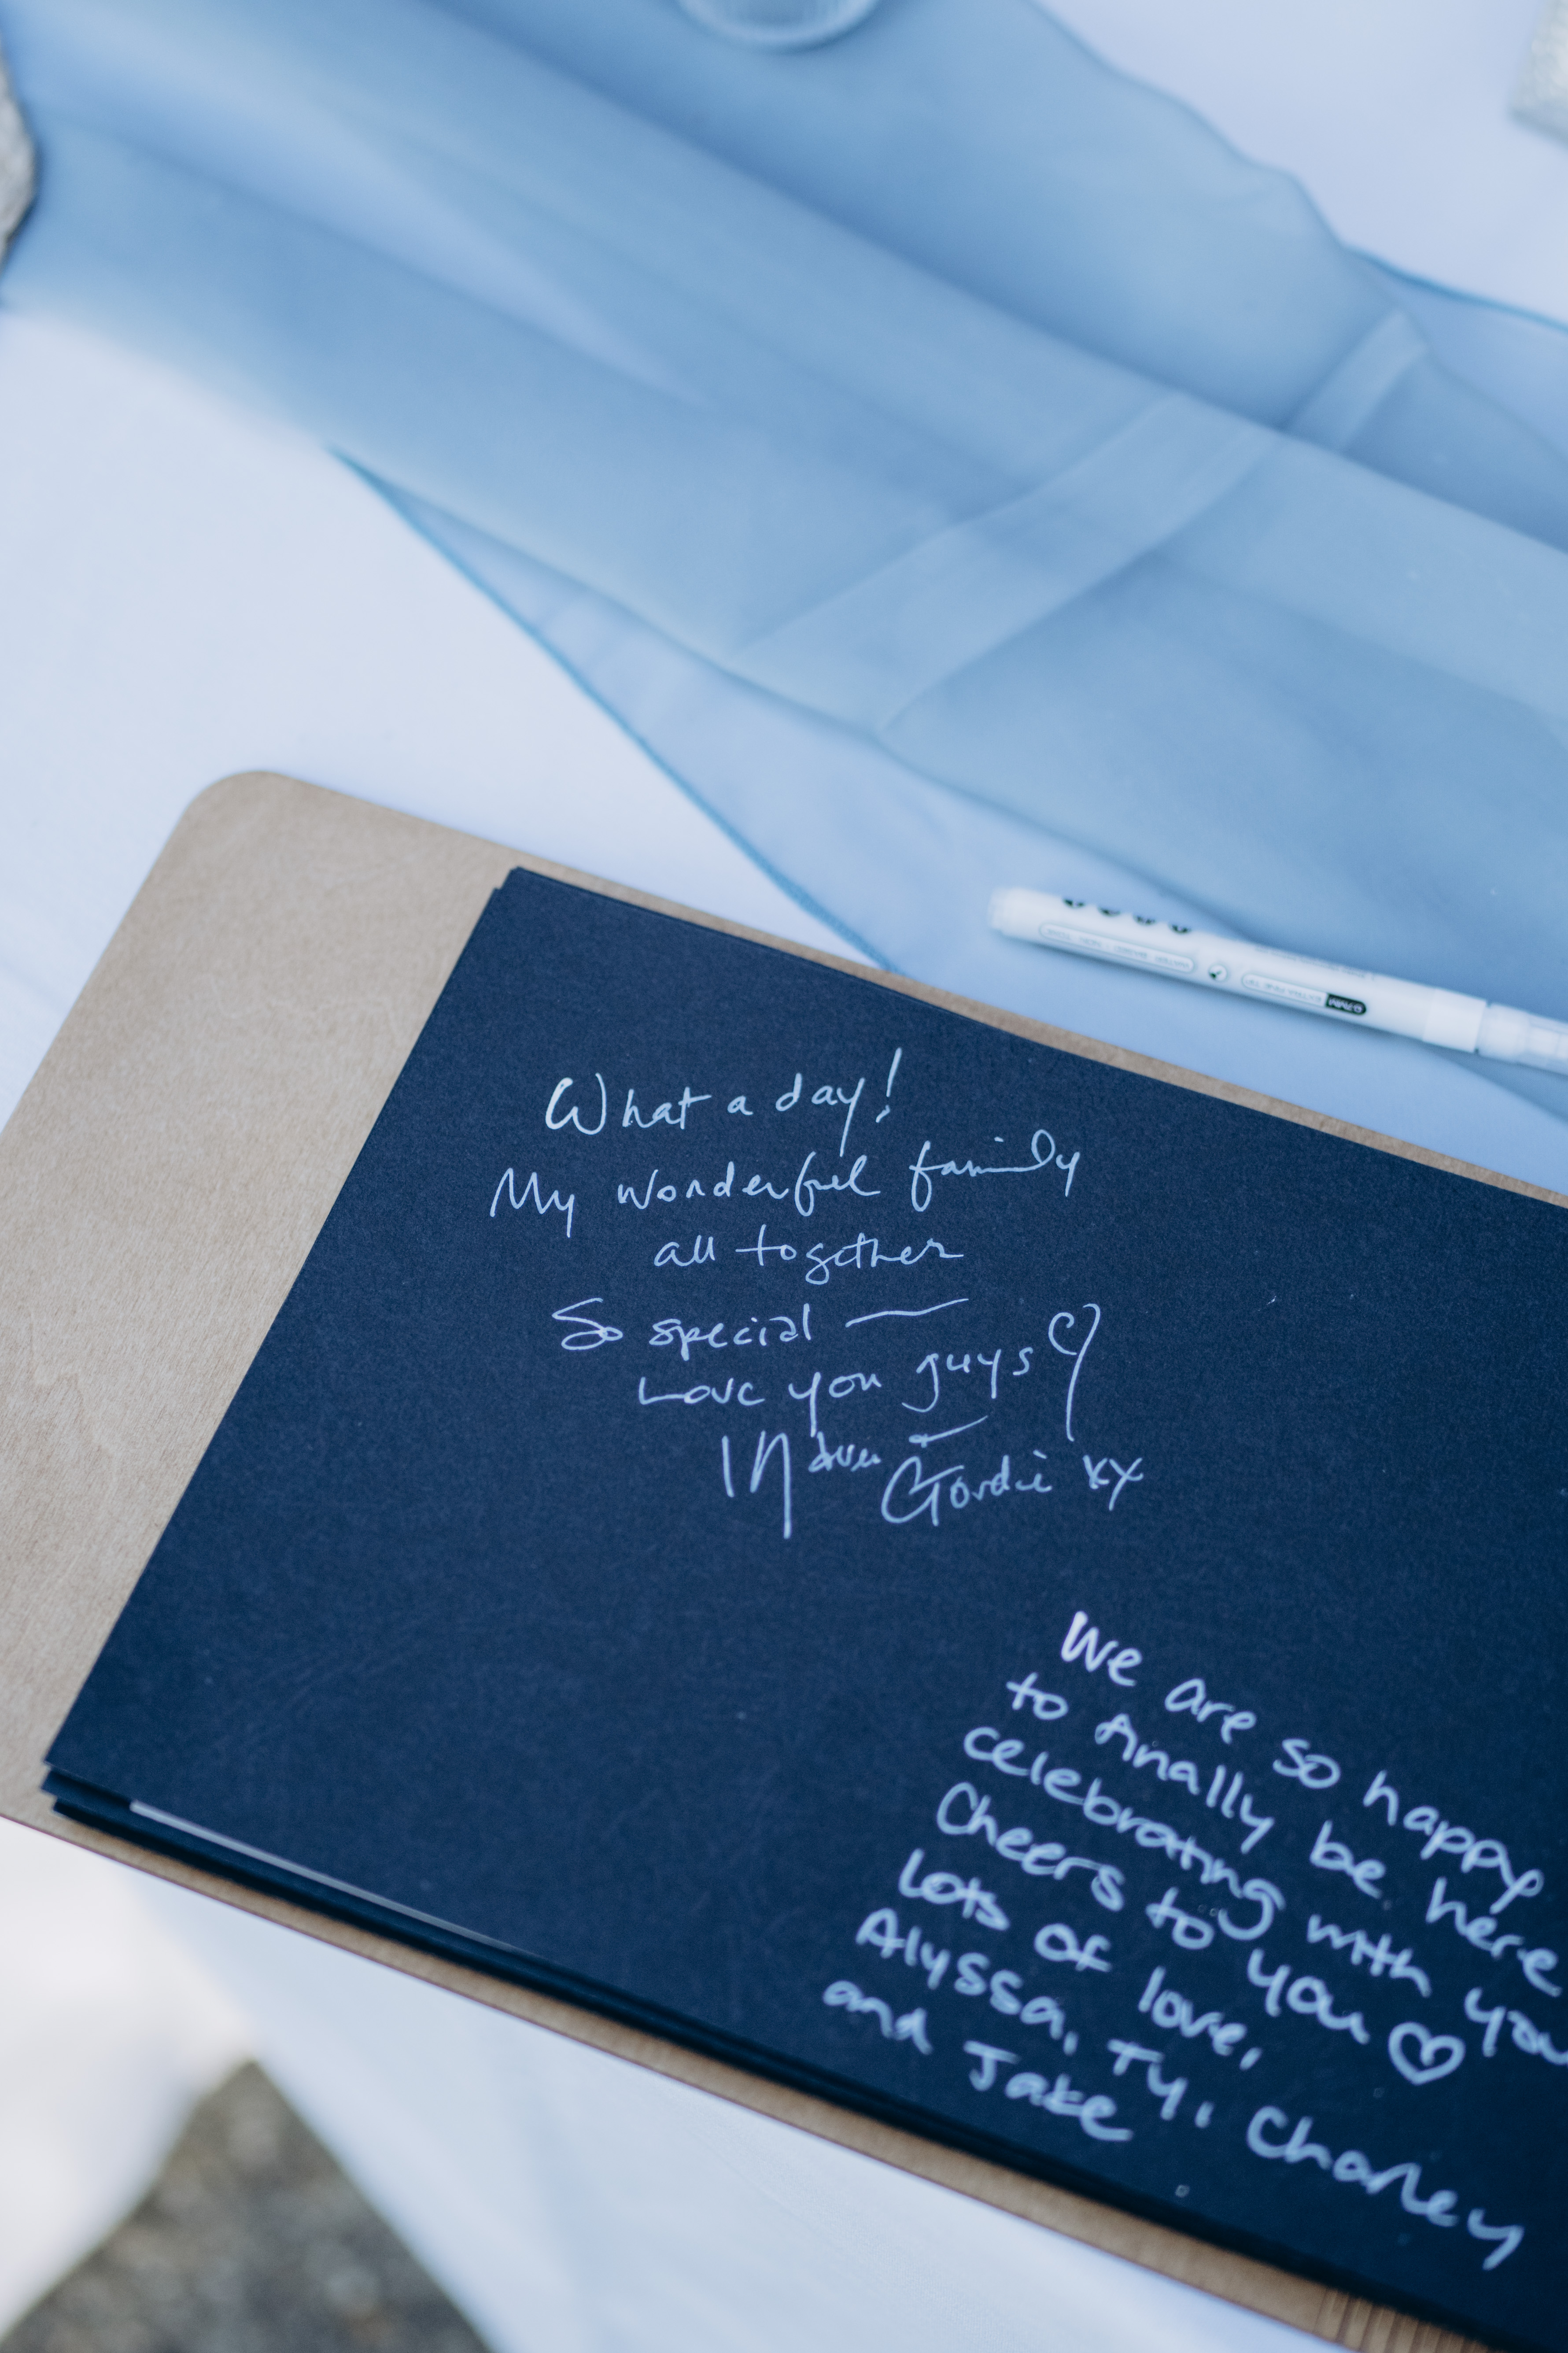 What a day!
My wonderful family
all together
So special —
Love you guys
Gordie xx
We are so happy
to finally be here
celebrating with you
Cheers to you ♡
lots of love,
Alyssa, Ty, Charley
and Jake